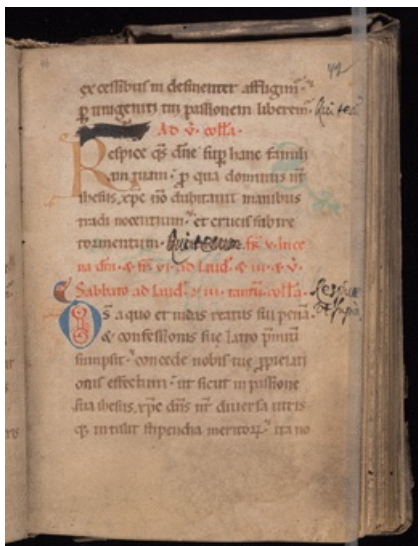 42
ex cessibus indesinenter affligim᷒
p unigeniti tui passionem liberem᷒. Qui tecū
Ad v̄. coll̄a.
Respice q̄s dn̄e sup hanc famili
am tuam. p qua dominus nr̄
ihesus xpc nō dubitavit manibus
tradi nocentium. et crucis subire
tormentum. Qui tecum. fr̄. v. in ce
na dn̄i. & fr̄. vi. ad laud̄. & iii. & v̄.
Sabbato ad laud̄. & iii. tantū. coll̄a.
DS̄ a quo et iudas reatus sui penā.
& confessionis sue latro p̄miū
sumpsit. concede nobis tue p̄piciati
onis effectum. ut sicut in passione
sua ihesus xpc dn̄s nr̄ diversa utris
q; intulit stipendia meritoꝝ. ita no